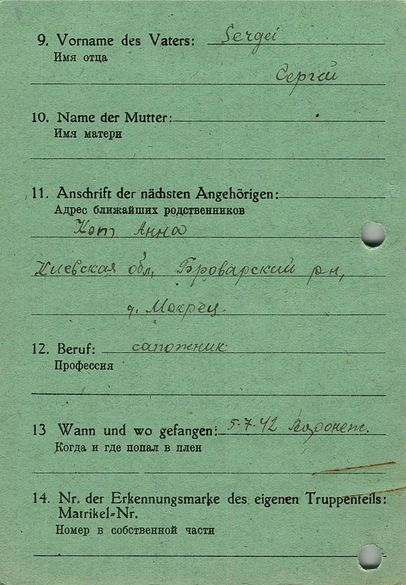 9. Vorname des Vaters: Sergei
Имя отца
Сергей
10. Name der Mutter:
Имя матери
11. Anschrift der nächsten Angehörigen:
Адрес ближайших родственников
Кот Анна
Киевская обл, Броварский р-н,
д. Мокрец.
12. Beruf: сапожник
Профессия
13 Wann und wo gefangen: 5.7.42 Воронеж.
Когда и где попал в плен
14. Nr. der Erkennungsmarke des eigenen Truppenteils:
Matrikel-Nr.
Номер в собственной части